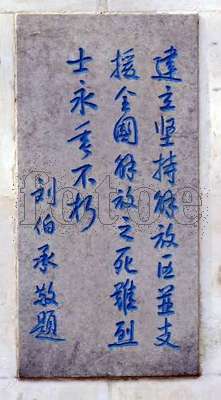 建立坚持解放区並支
援全國解放之死難烈
士永垂不朽
刘伯承敬題
fotoe